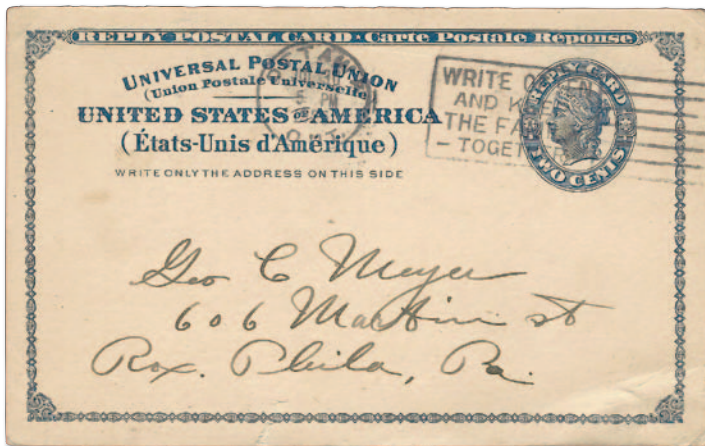 REPLY POSTAL CARD · Carte Postale Réponse
UNIVERSAL POSTAL UNION
(Union Postale Universelle)
UNITED STATES OF AMERICA
(États-Unis d'Amérique)
WRITE ONLY THE ADDRESS ON THIS SIDE
5 PM
ONT.
WRITE OFTEN
AND
THE FA
- TOGETHER
REPLY CARD
TWO CENTS
Geo C Meyer
606 Martin st
Rox. Phila, Pa.